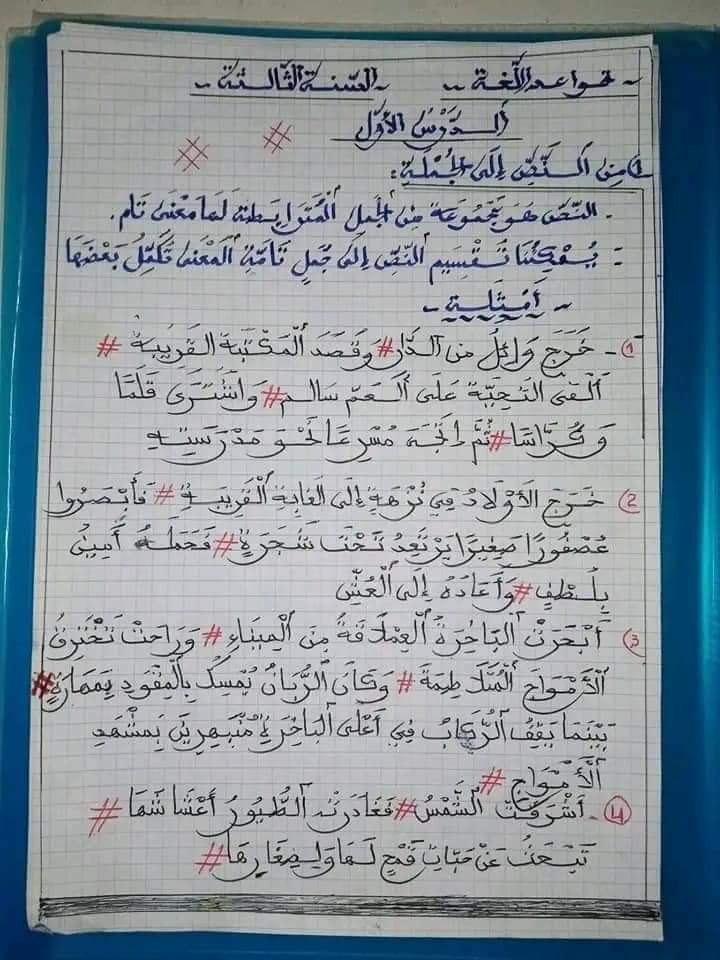 - قواعد اللّغة - - السّنة الثّالثة -
الدّرس الأوّل
1 من النّصّ إلى الجُملة:
- النّصّ هو مجموعة من الجمل المُترابطة لها معنى تام.
- يُمْكِنُنا تَقْسِيم النّصّ إلى جُمَلٍ تَامّةِ المَعْنى تُكَمِّلُ بَعْضَها
- أمثلة -
1- خَرَجَ وَائِلُ مِنَ الدّارِ # وَقَصَدَ المَكْتَبَةَ القَرِيبَةَ #
ألْقَى التَّحِيّةَ عَلَى العَمّ سَالِم # وَاشْتَرَى قَلَمًا
وَكُرَّاسًا # ثُمَّ اتّجَهَ مُسْرِعًا نَحْوَ مَدْرَسَتِهِ
2 خَرَجَ الأَوْلَادُ فِي نُزْهَةٍ إلَى الغَابَةِ القَرِيبَةِ # فَأبْصَرُوا
عُصْفُورًا صَغِيرًا يَرْتَعِدُ تَحْتَ شَجَرَةٍ # فَحَمَلَهُ أَمِينُ
بِلُطْفٍ # وَأَعَادَهُ إِلَى العُشِّ
3 أَبْحَرَتْ البَاخِرَةُ العِمْلَاقَةُ مِنَ المِينَاءِ # وَرَاحَتْ تَخْتَرِقُ
الأَمْوَاجَ المُتَلَاطِمَةَ # وَكَانَ الرُّبَانُ يُمْسِكُ بِالمِقْوَدِ بِمَهَارَةٍ #
بَيْنَمَا يَقِفُ الرُّكّابُ فِي أَعْلَى البَاخِرَةِ مُنْبَهِرِينَ بِمَشْهَدِ
الأَمْوَاجِ #
4- أَشْرَقَتْ الشَّمْسُ # فَغَادَرَتِ الطُّيُورُ أَعْشَاشَهَا #
تَبْحَثُ عَنْ حَبَّاتِ قَمْحٍ لَهَا وَلِصِغَارِهَا #